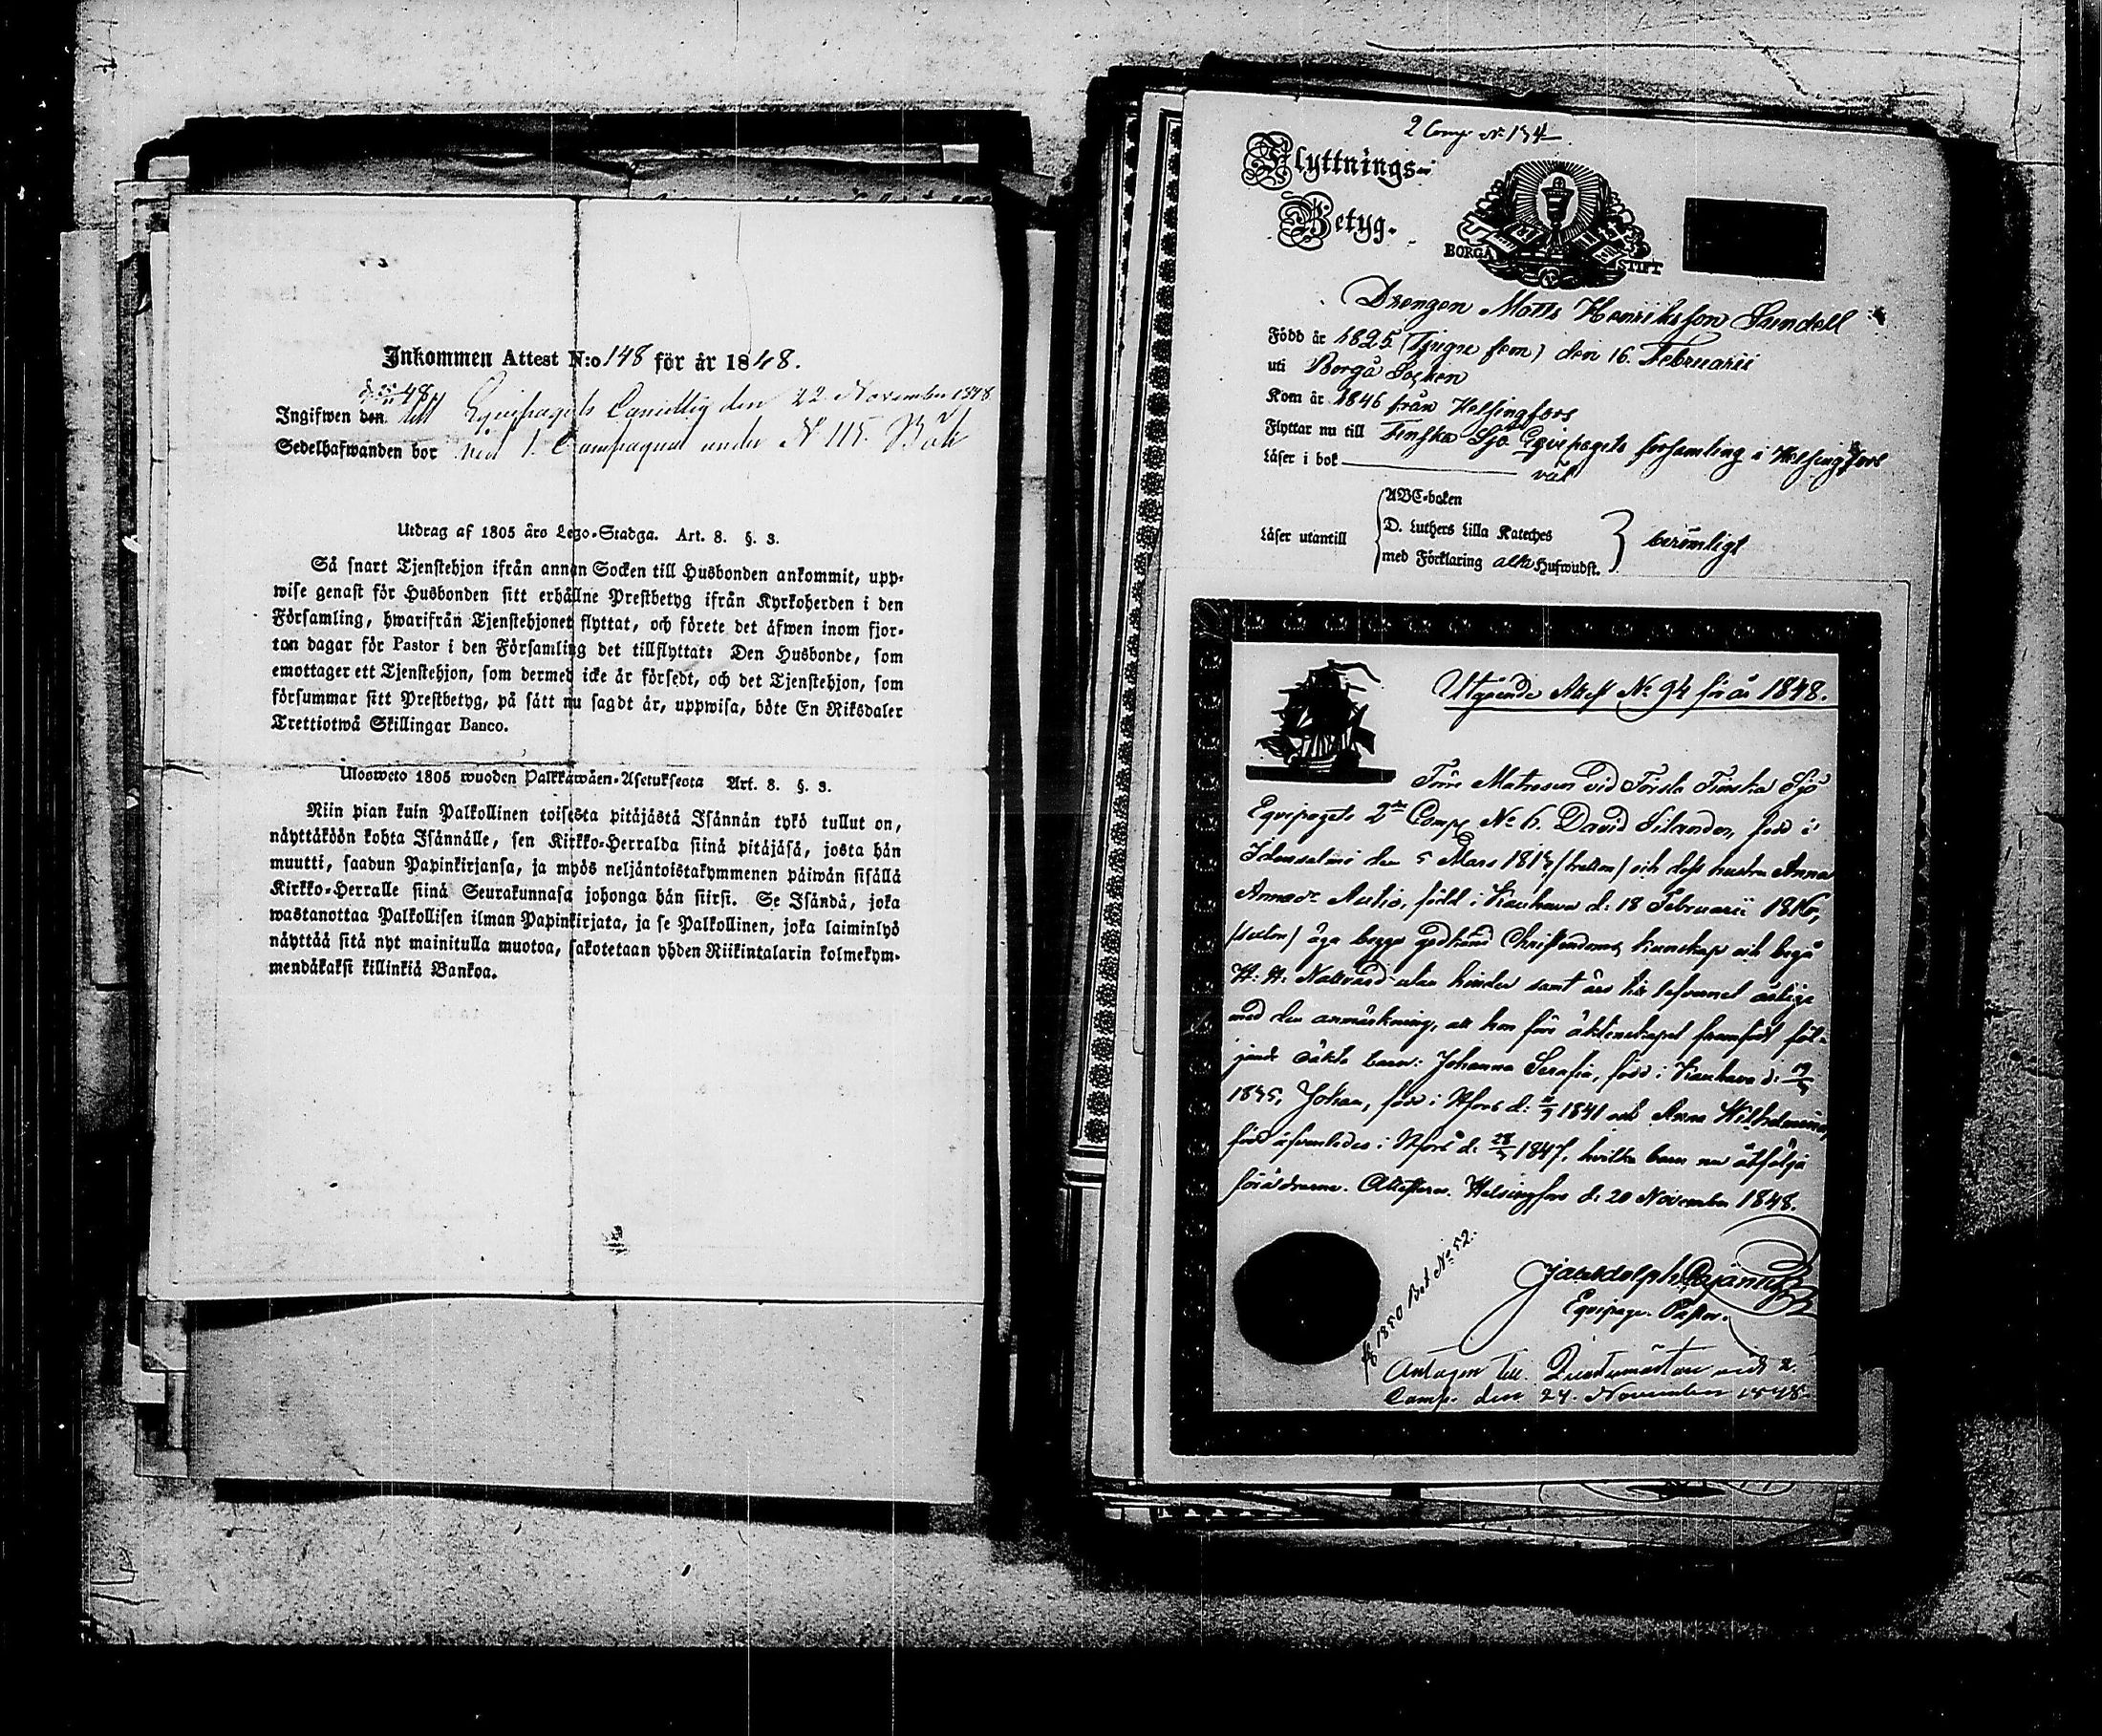 Inkommen Attest N:o 148 för år 1848.
Ingifwen den till Equipagets Canselig den 22 November 1848
Sedelhafwanden bor vid 1. Compagniet under N 115. Bok
Utdrag af 1805 års Lego-Stadga. Art. 8. §. 3.
Så snart Tjenstehjon ifrån annan Socken till Husbonden ankommit, upp-
wise genast för Husbonden sitt erhållne Prestbetyg ifrån Kyrkoherden i den
Församling, hwarifrån Tjenstehjonet flyttat, och förete det äfwen inom fjor-
ton dagar för Pastor i den Församling det tillflyttat: Den Husbonde, som
emottager ett Tjenstehjon, som dermed icke är försedt, och det Tjenstehjon, som
försummar sitt Prestbetyg, på sätt nu sagdt är, uppwisa, böte En Riksdaler
Trettiotwå Skillingar Banco.
Ulosweto 1805 wuoden Palkkawäen-Asetuksesta Art. 8. §. 3.
Niin pian kuin Palkollinen toisesta pitäjästä Isännän tykö tullut on,
näyttäköön kohta Isännälle, sen Kirkko-Herralda siinä pitäjäsä, josta hän
muutti, saadun Papinkirjansa, ja myös neljäntoistakymmenen päiwän sisällä
Kirkko-Herralle siinä Seurakunnasa johonga hän siirsi. Se Isändä, joka
wastanottaa Palkollisen ilman Papinkirjata, ja se Palkollinen, joka laiminlyö
näyttää sitä nyt mainitulla muotoa, sakotetaan yhden Riikintalarin kolmekym-
mendäkaksi killinkiä Bankoa.
2 Comp. N: 134
Flyttnings-
Betyg.
BORGÅ STIFT
Drengen Matts Henriksson Sundell
Född år 1825 (Tjugu fem) den 16. Februarii
uti Borgå Socken
Kom år 1846 från Helsingfors
Flyttar nu till Finska Sjö Equipagets församling i Helsingfors
Läser i bok väl
ABC-boken
Läser utantill D. Luthers Lilla Kateches berömligt
med Förklaring alla Hufwudst.
Utgående Attest No 94 för år 1848.
Förre Matrosen vid Första Finska Sjö
Equipagets 2dra Comp. No 6. David Silander, född i
Idensalmi den 5 Mars 1813 (tretton) och dess hustru Anna
Annasdr Autio, född i Kauhava d: 18 Februarii 1816,
(sexton) äga begge godkänd Christendoms kunskap och begå
H. H. Nattvard utan hinder samt äro till lefvernet ärlige
med den anmärkning, att hon före äktenskapet framfödt föl-
jande oäkta barn: Johanna Serafia, född i Kauhava d:
1835, Johan, född i Hfors d: 1841 och Anna Wilhelmina,
född äfvenledes i Hfors d: 1847, hvilka barn nu åtfölja
föräldrarne. Attesterar. Helsingfors d: 20 November 1848.
Equipage-Pastor.
1850 Bet No 52.
Antagen till Qvartersmästare vid 2
Comp. den 24. November 1848.